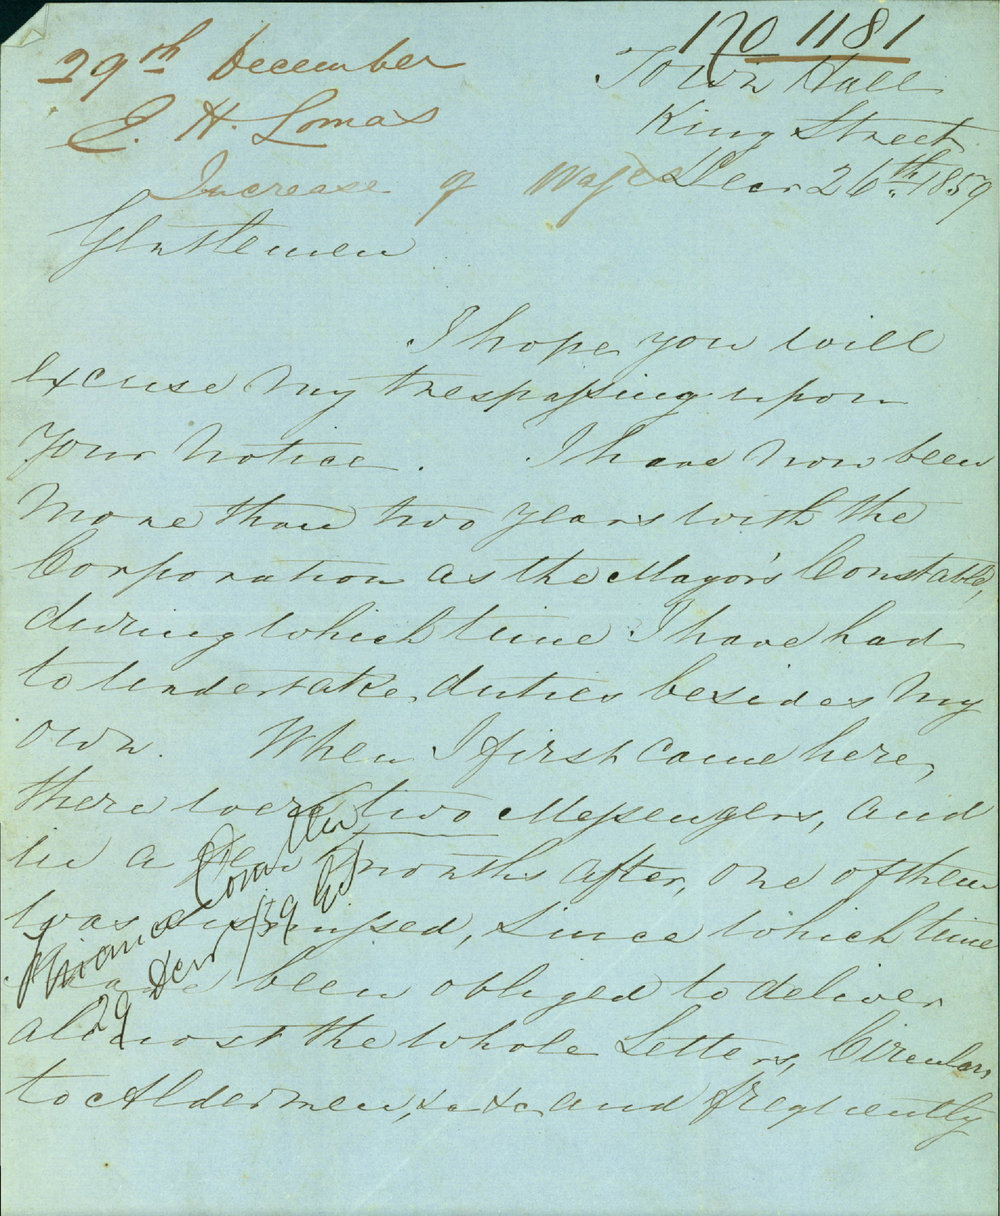 170 1181
29th December
E. H. Lomas
Increase of Wages
Town Hall
King Street
Decr 26th 1859
Gentlemen
I hope you will
excuse my trespassing upon
your notice. I have now been
more than two years with the
Corporation as the Mayor's Constable,
during which time I have had
to undertake duties besides my
own. When I first came here,
there were two Messengers, and
in a few months after, one of them
was dismissed, since which time
I have been obliged to deliver
almost the whole Letters, Circulars
to Aldermen, &c &c and frequently
Finance Committee
29 Decr /59